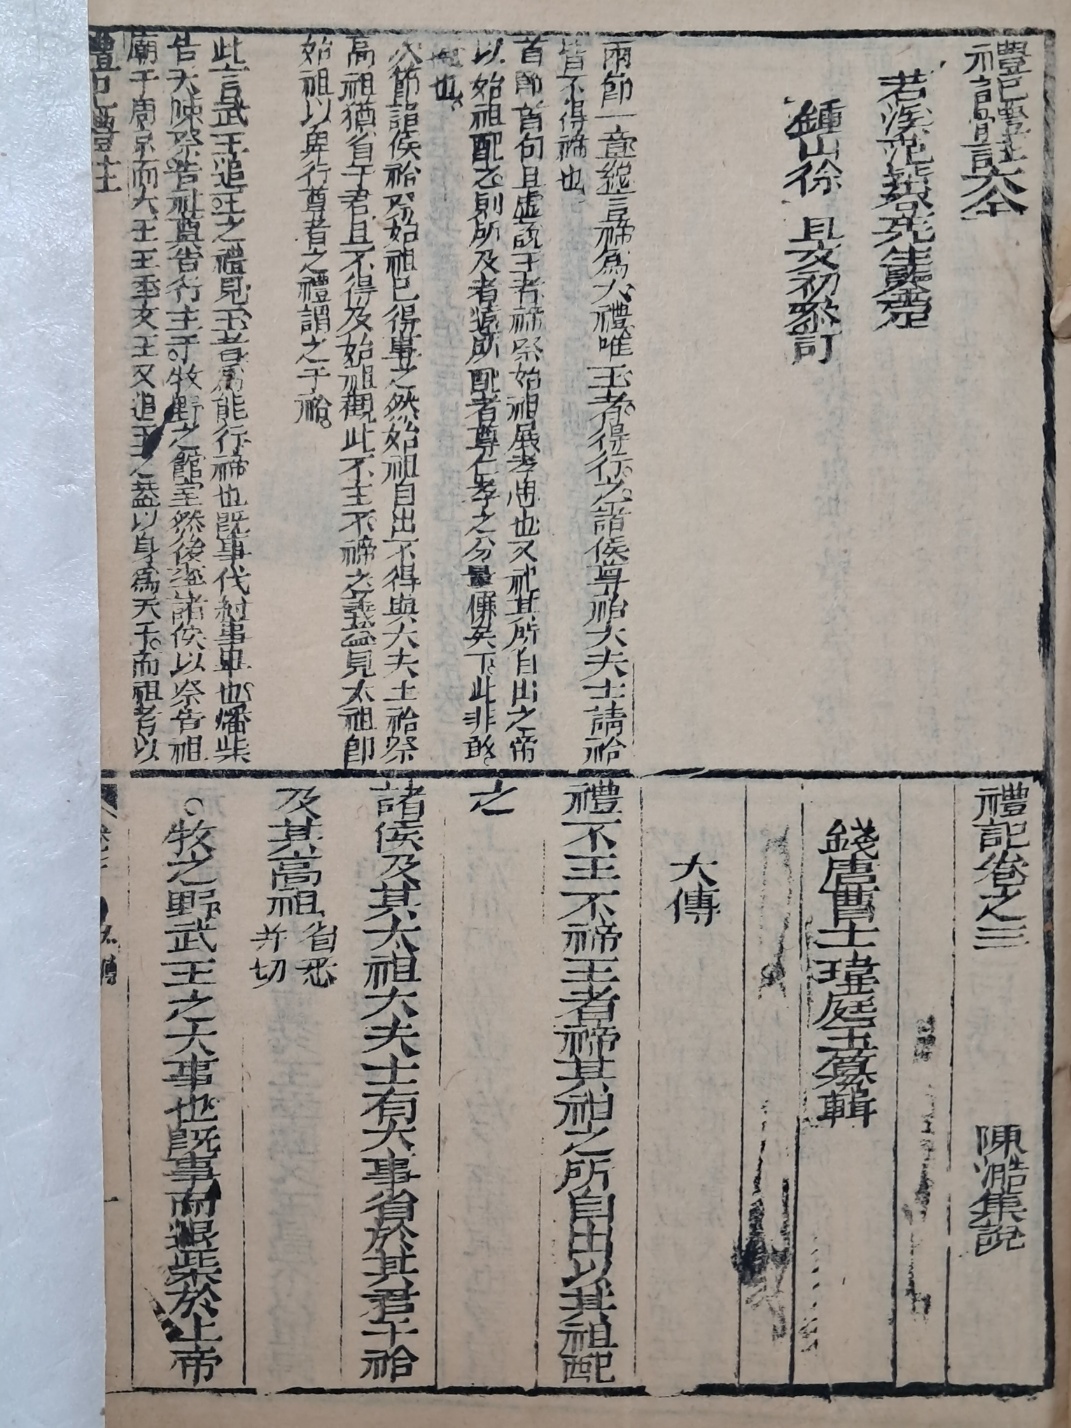 禮記體註大全
苕溪范紫登先生鑒定
鍾山徐 旦文初參訂
兩節一章總言禘為大禮唯王者得行之諸侯尊祫大夫士請祫
皆不得禘也
首節首句且虛說王者禘祭始祖展孝思也又祀其所自出之帝
以始祖配之則所及者遠所配者尊仁孝之分量備矣下此非敢
也
次節諸侯祫祭始祖已得專之然始祖自出不得與大夫士祫祭
高祖猶省于君且不得及始祖觀此不王不禘之義益見太祖卽
始祖以卑行尊者之禮謂之干祫
此言武王追王之禮見王者為能行禘也旣事代紂事畢也燔柴
告天陳祭告社奠告行主于牧野之館室然後率諸侯以祭告祖
廟于周京而大王王季文王又追王之蓋以身為天子而祖考以
禮記體註
禮記卷之三 陳澔集說
錢唐曹士瑋庭玉纂輯
大傳
禮不王不禘王者禘其祖之所自出以其祖配
之
諸侯及其大祖大夫士有大事省於其君干祫
及其高祖 省悉井切
○牧之野武王之大事也旣事而退柴於上帝